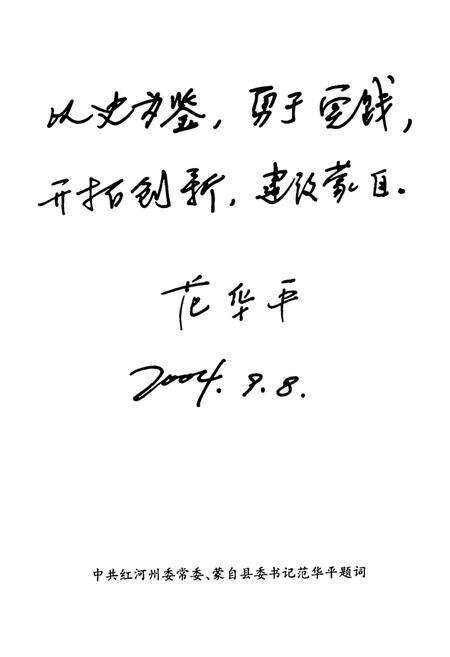 以史为鉴，勇于实践，
开拓创新，建设蒙自。
范华平
2004.9.8.
中共红河州委常委、蒙自县委书记范华平题词